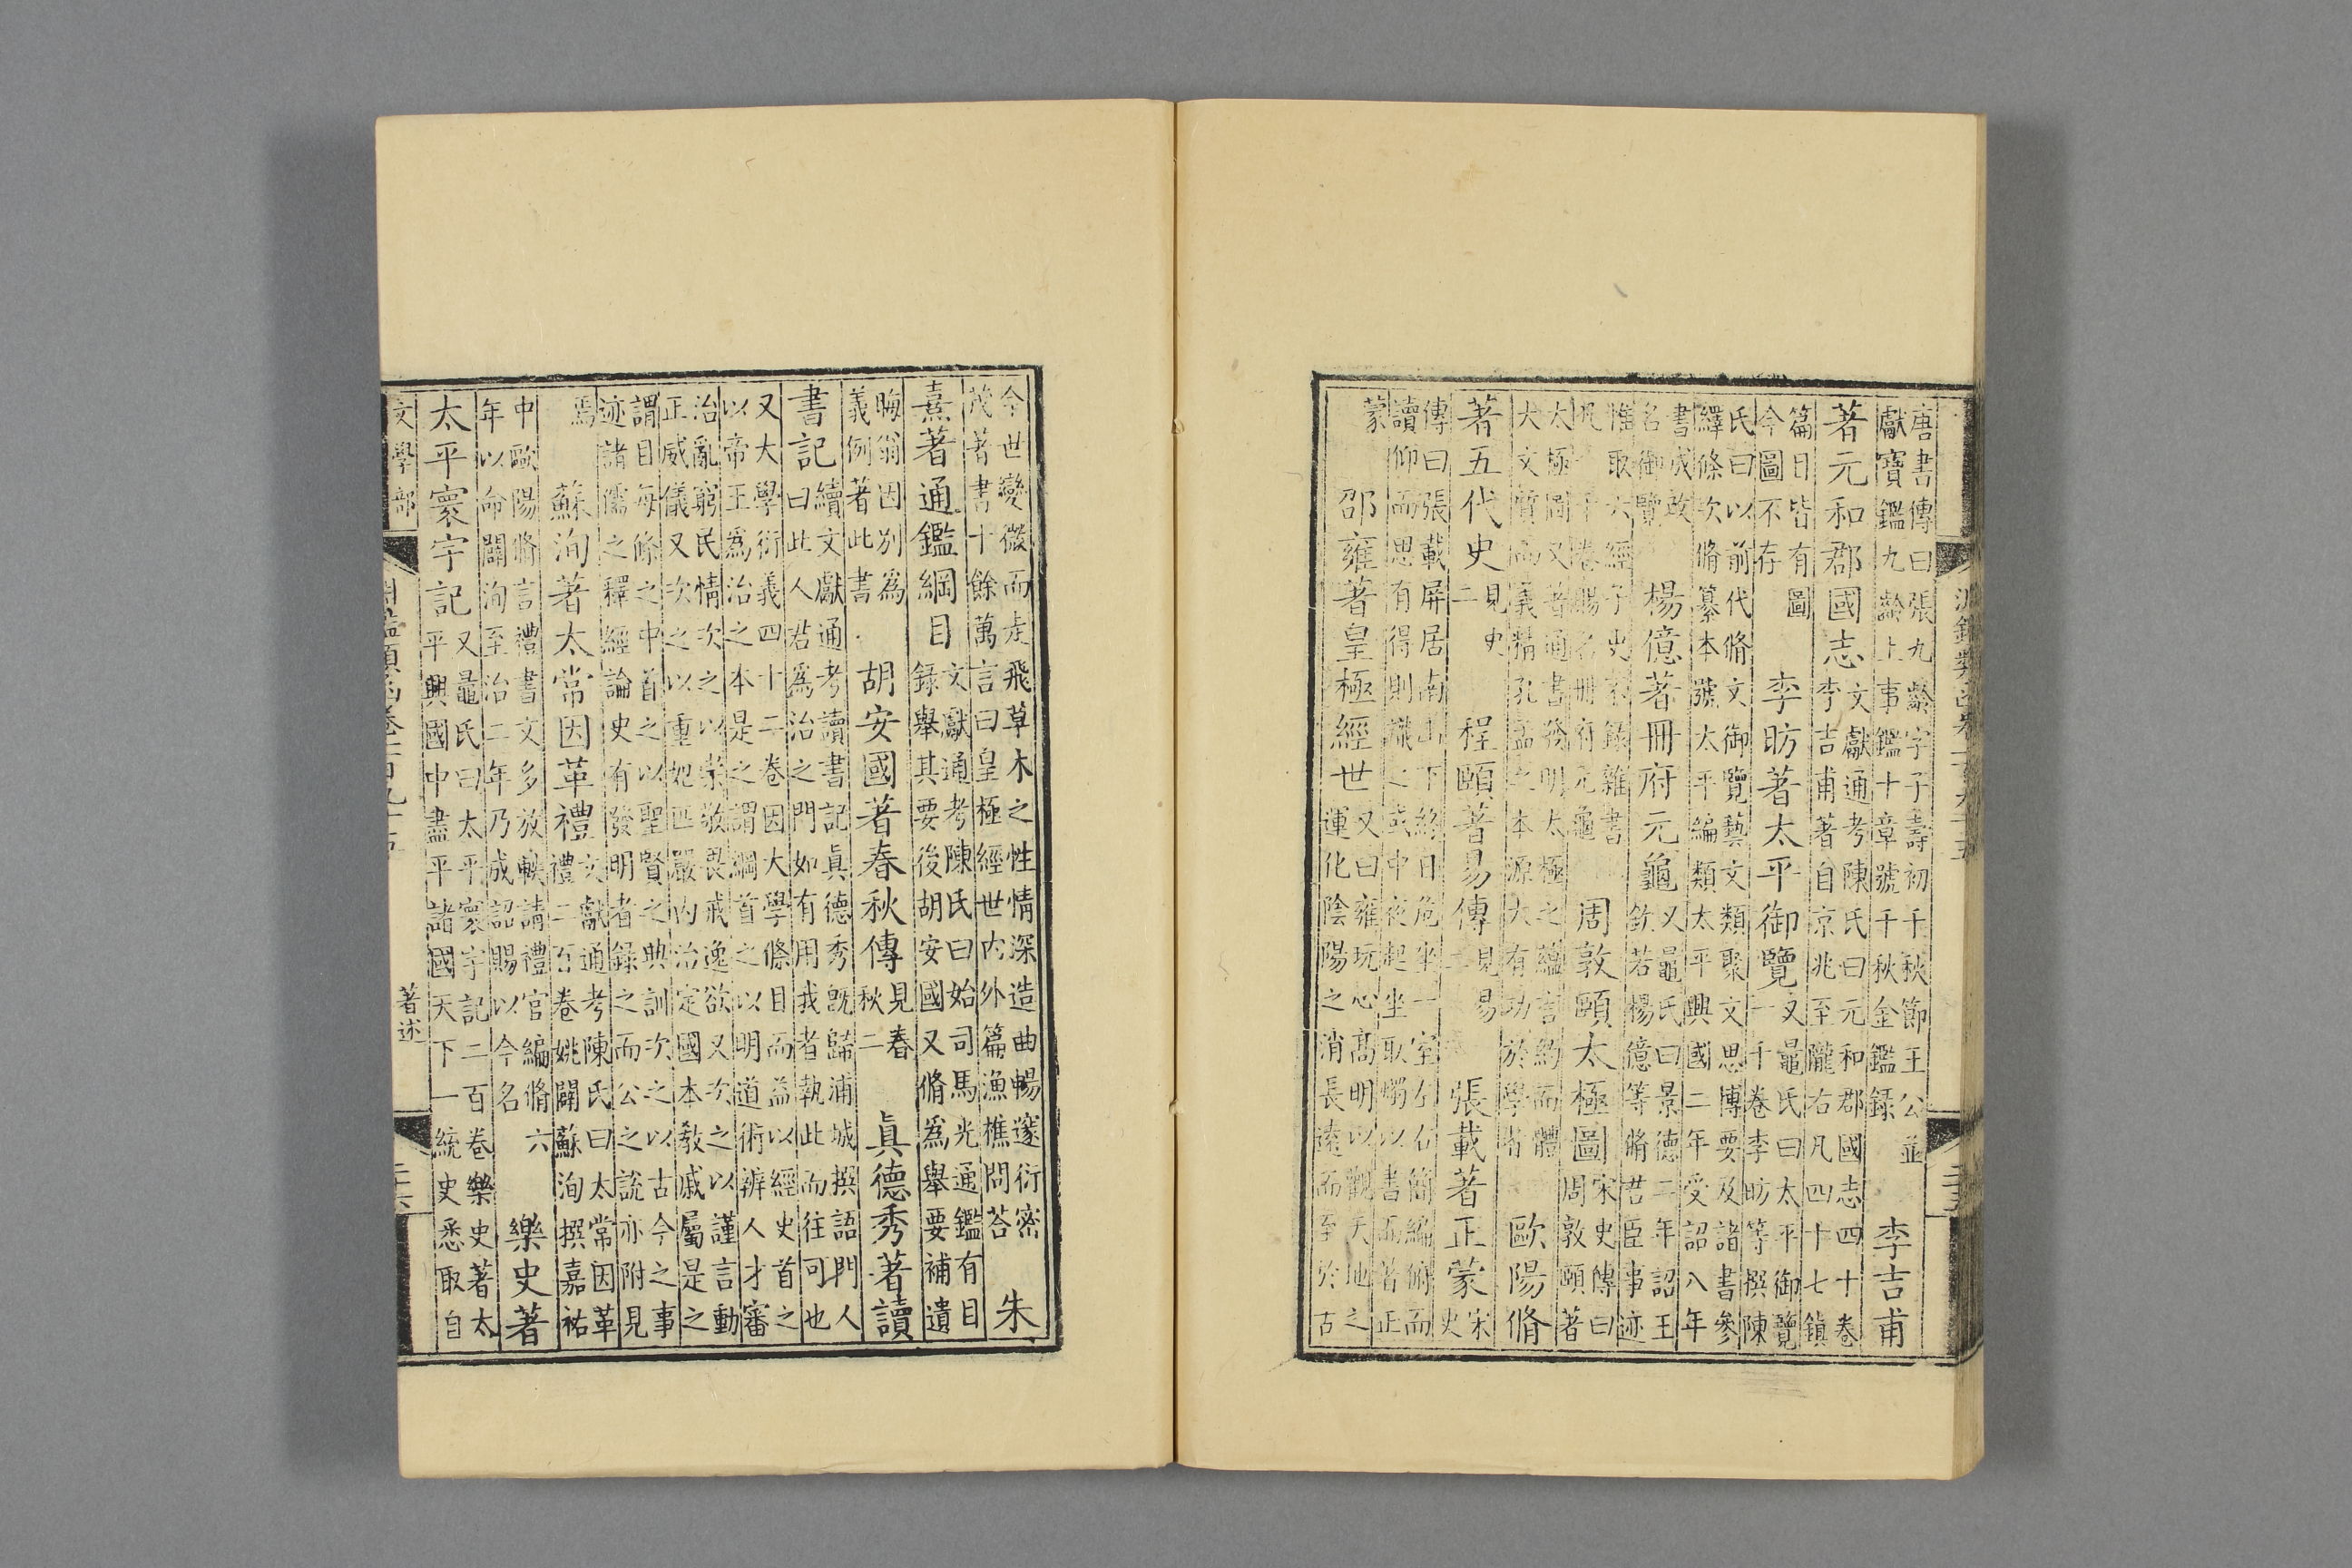 唐書傳曰張九齡字子壽初千秋節王公並
獻寶鑑九齡上事鑑十章號千秋金鑑錄
李吉甫
著元和郡國志
文獻通考陳氏曰元和郡國志四十卷
李吉甫著自京兆至隴右凡四十七鎮
篇目皆有圖
今圖不存
李昉著太平御覽
又鼂氏曰太平御覽
一千卷李昉等撰陳
氏曰以前代脩文御覽藝文類聚文思博要及諸書參
繹條次脩纂本號太平編類太平興國二年受詔八年
書成改
名御覽
楊億著冊府元龜
又鼂氏曰景德二年詔王
欽若楊億等脩君臣事迹
惟取六經子史不錄雜書
凡一千卷賜名冊府元龜
周敦頤太極圖
宋史傳曰
周敦頤著
太極圖又著通書發明太極之蘊言約而體
大文質而義精孔孟之本源大有功於學者
歐陽脩
著五代史
見史
二
程頤著易傳
見易
二
張載著正蒙
宋
史
傳曰張載屏居南山下終日危坐一室左右簡編俯而
讀仰而思有得則識之或中夜起坐取燭以書而著正
蒙
邵雍著皇極經世
又曰雍玩心高明以觀天地之
運化陰陽之消長遠而至於古
今世變微而走飛草木之性情深造曲暢邃衍密
茂著書十餘萬言曰皇極經世内外篇漁樵問荅
朱
熹著通鑑綱目
文獻通考陳氏曰始司馬光通鑑有目
錄舉其要後胡安國又脩爲舉要補遺
晦翁因別爲
義例著此書
胡安國著春秋傳
見春
秋二
真德秀著讀
書記
續文獻通考讀書記真德秀既歸浦城撰語門人
曰此人君爲治之門如有用我者執此而往可也
又大學衍義四十二卷因大學條目而益以經史首之
以帝王爲治之本是之謂綱首之以明道術辨人才審
治亂窮民情次之以崇敬畏戒逸欲又次之以謹言動
正威儀又次之以重妃匹嚴內治定國本敎戚屬是之
謂目每條之中首之以聖賢之典訓次之以古今之事
迹諸儒之釋經論史有發明者錄之而公之說亦附見
焉
蘇洵著太常因革禮
文獻通考陳氏曰太常因革
禮二百卷姚闢蘇洵撰嘉祐
中歐陽脩言禮書文多放軼請禮官編脩六
年以命闢洵至治二年乃成詔賜以今名
樂史著
太平寰宇記
又鼂氏曰太平寰宇記二百卷樂史著太
平興國中盡平諸國天下一統史悉取自
文學部
淵鑑類函卷一百九十五
著述
二十六